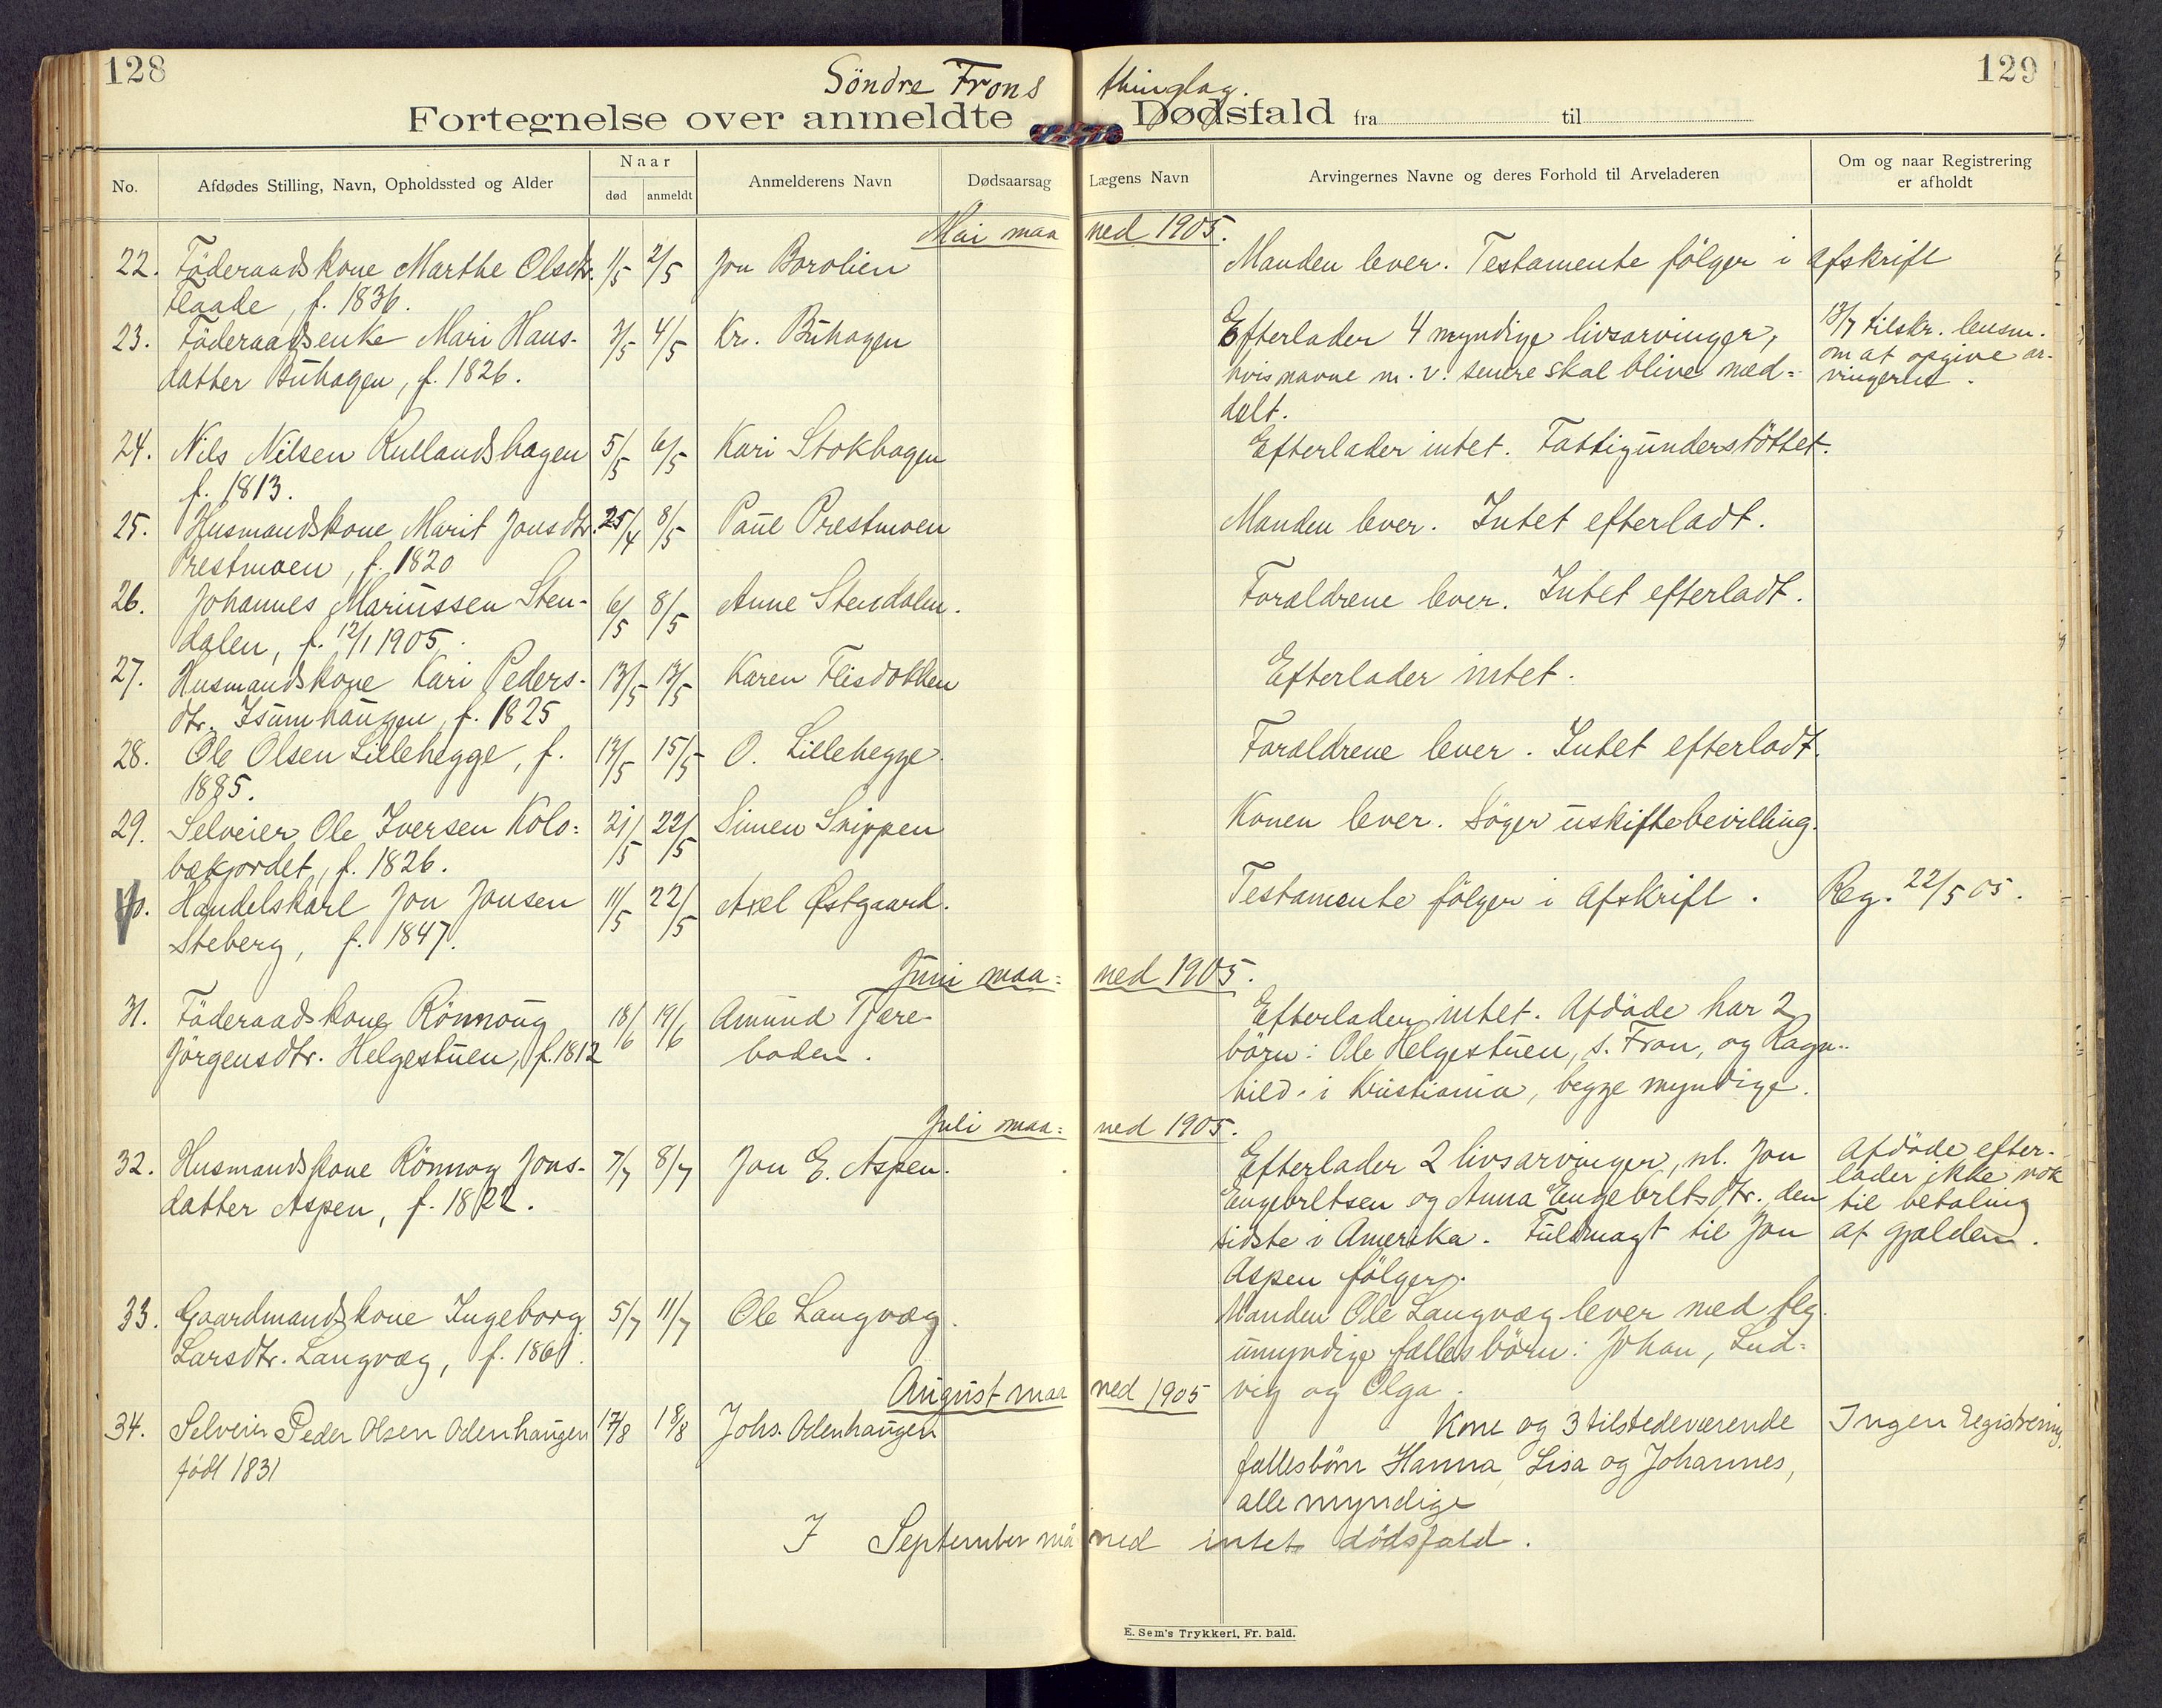 128
129
Söndre Frons thinglag.
Fortegnelse over anmeldte Dødsfald fra til
No.
Afdødes Stilling, Navn, Opholdssted og Alder
Naar
død
anmeldt
Anmelderens Navn
Dødsaarsag
Lægens Navn
Arvingernes Navne og deres Forhold til Arveladeren
Om og naar Registrering
er afholdt
Mai maaned 1905.
22. Föderaadskone Marthe Olsdtr. 1/5 2/5 Jon Borolien Manden lever. Testamente fölger i Afskrift
Flaade, f. 1836.
23. Föderaadsenke Mari Hans- 3/5 4/5 Kr. Buhagen Efterlader 4 myndige livsarvinger, 13/7 tilskr. lensm.
datter Buhagen, f. 1826. hvis navne m. v. senere skal blive med- om at opgive ar-
delt. vingerne.
24. Nils Nilsen Rullandshagen 5/5 6/5 Kari Stokhagen Efterlader intet. Fattigunderstöttet.
f. 1813.
25. Husmandskone Marit Jonsdtr. 25/4 8/5 Paul Prestmoen Manden lever. Intet efterladt.
Prestmoen, f. 1820
26. Johannes Mariussen Sten- 6/5 8/5 Anne Stendalen. Forældrene lever. Intet efterladt.
dalen, f. 12/1 1905.
27. Husmandskone Kari Peders- 13/5 13/5 Karen Flisdokken Efterlader intet.
dtr. Isumhaugen, f. 1825
28. Ole Olsen Lillehegge, f. 13/5 15/5 O. Lillehegge. Forældrene lever. Intet efterladt.
1885.
29. Selveier Ole Iversen Kolo- 21/5 22/5 Simen Snippen Konen lever. Söger uskiftebevilling.
bækjordet, f. 1826.
30. Handelskarl Jon Jonsen 11/5 22/5 Axel Østgaard. Testamente fölger i Afskrift. Reg. 22/5 05.
Steberg, f. 1847.
Juni maa=ned 1905.
31. Föderaadskone Rönnoug 18/6 19/6 Amund Tjære- Efterlader intet. Afdöde har 2
Jörgensdtr. Helgestuen, f. 1812 boden. börn: Ole Helgestuen, s. Fron, og Ragn-
hild i Kristiania, begge myndige.
Juli maa=ned 1905.
32. Husmandskone Rönnog Jons- 7/7 8/7 Jon E. Aspen. Efterlader 2 livsarvinger, nl. Jon Afdöde efter-
datter Aspen, f. 1822. Engebretsen og Anna Engebretsdtr., den lader ikke nok
sidste i Amerika. Fuldmagt til Jon til betaling
Aspen fölger. af gjælden.
33. Gaardmandskone Ingeborg 5/7 11/7 Ole Langvæg. Manden Ole Langvæg lever med flg.
Larsdtr. Langvæg, f. 1861. umyndige fællesbörn: Johan, Lud-
vig og Olga.
August maaned 1905
34. Selveier Peder Olsen Odenhaugen 17/8 18/8 Johs. Odenhaugen Kone og 3 tilstedeværende Ingen registrering.
födt 1831 fællesbörn Hanna, Lisa og Johannes,
alle myndige
I September måned intet dödsfald.
E. Sem's Trykkeri, Fr. hald.